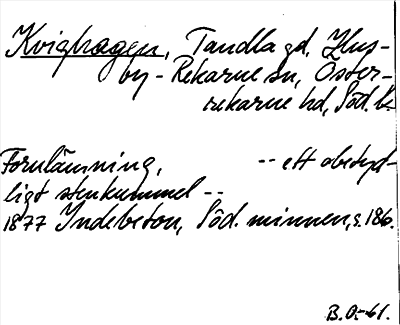 Kvighagen, Tandla gd, Hus-
by-Rekarne sn, Öster-
rekarne hd, Söd. l.
Fornlämning, -- ett obetyd-
ligt stenkummel --
1877 Indebetou, Söd. minnen, s. 186.
B.O:-61.